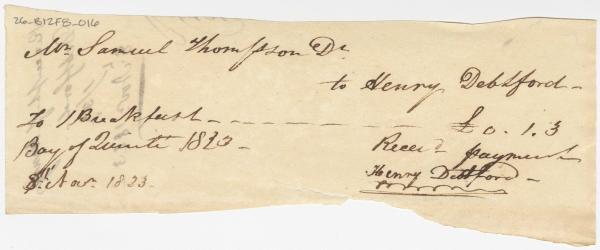 26-B12FB-016
Mr. Samuel Thompson Dr.
to Henry Debtford
To 1 Breakfast £0.1.3
Bay of Quinte 1823 Receid payment
8th Novr. 1823 Henry Debtford